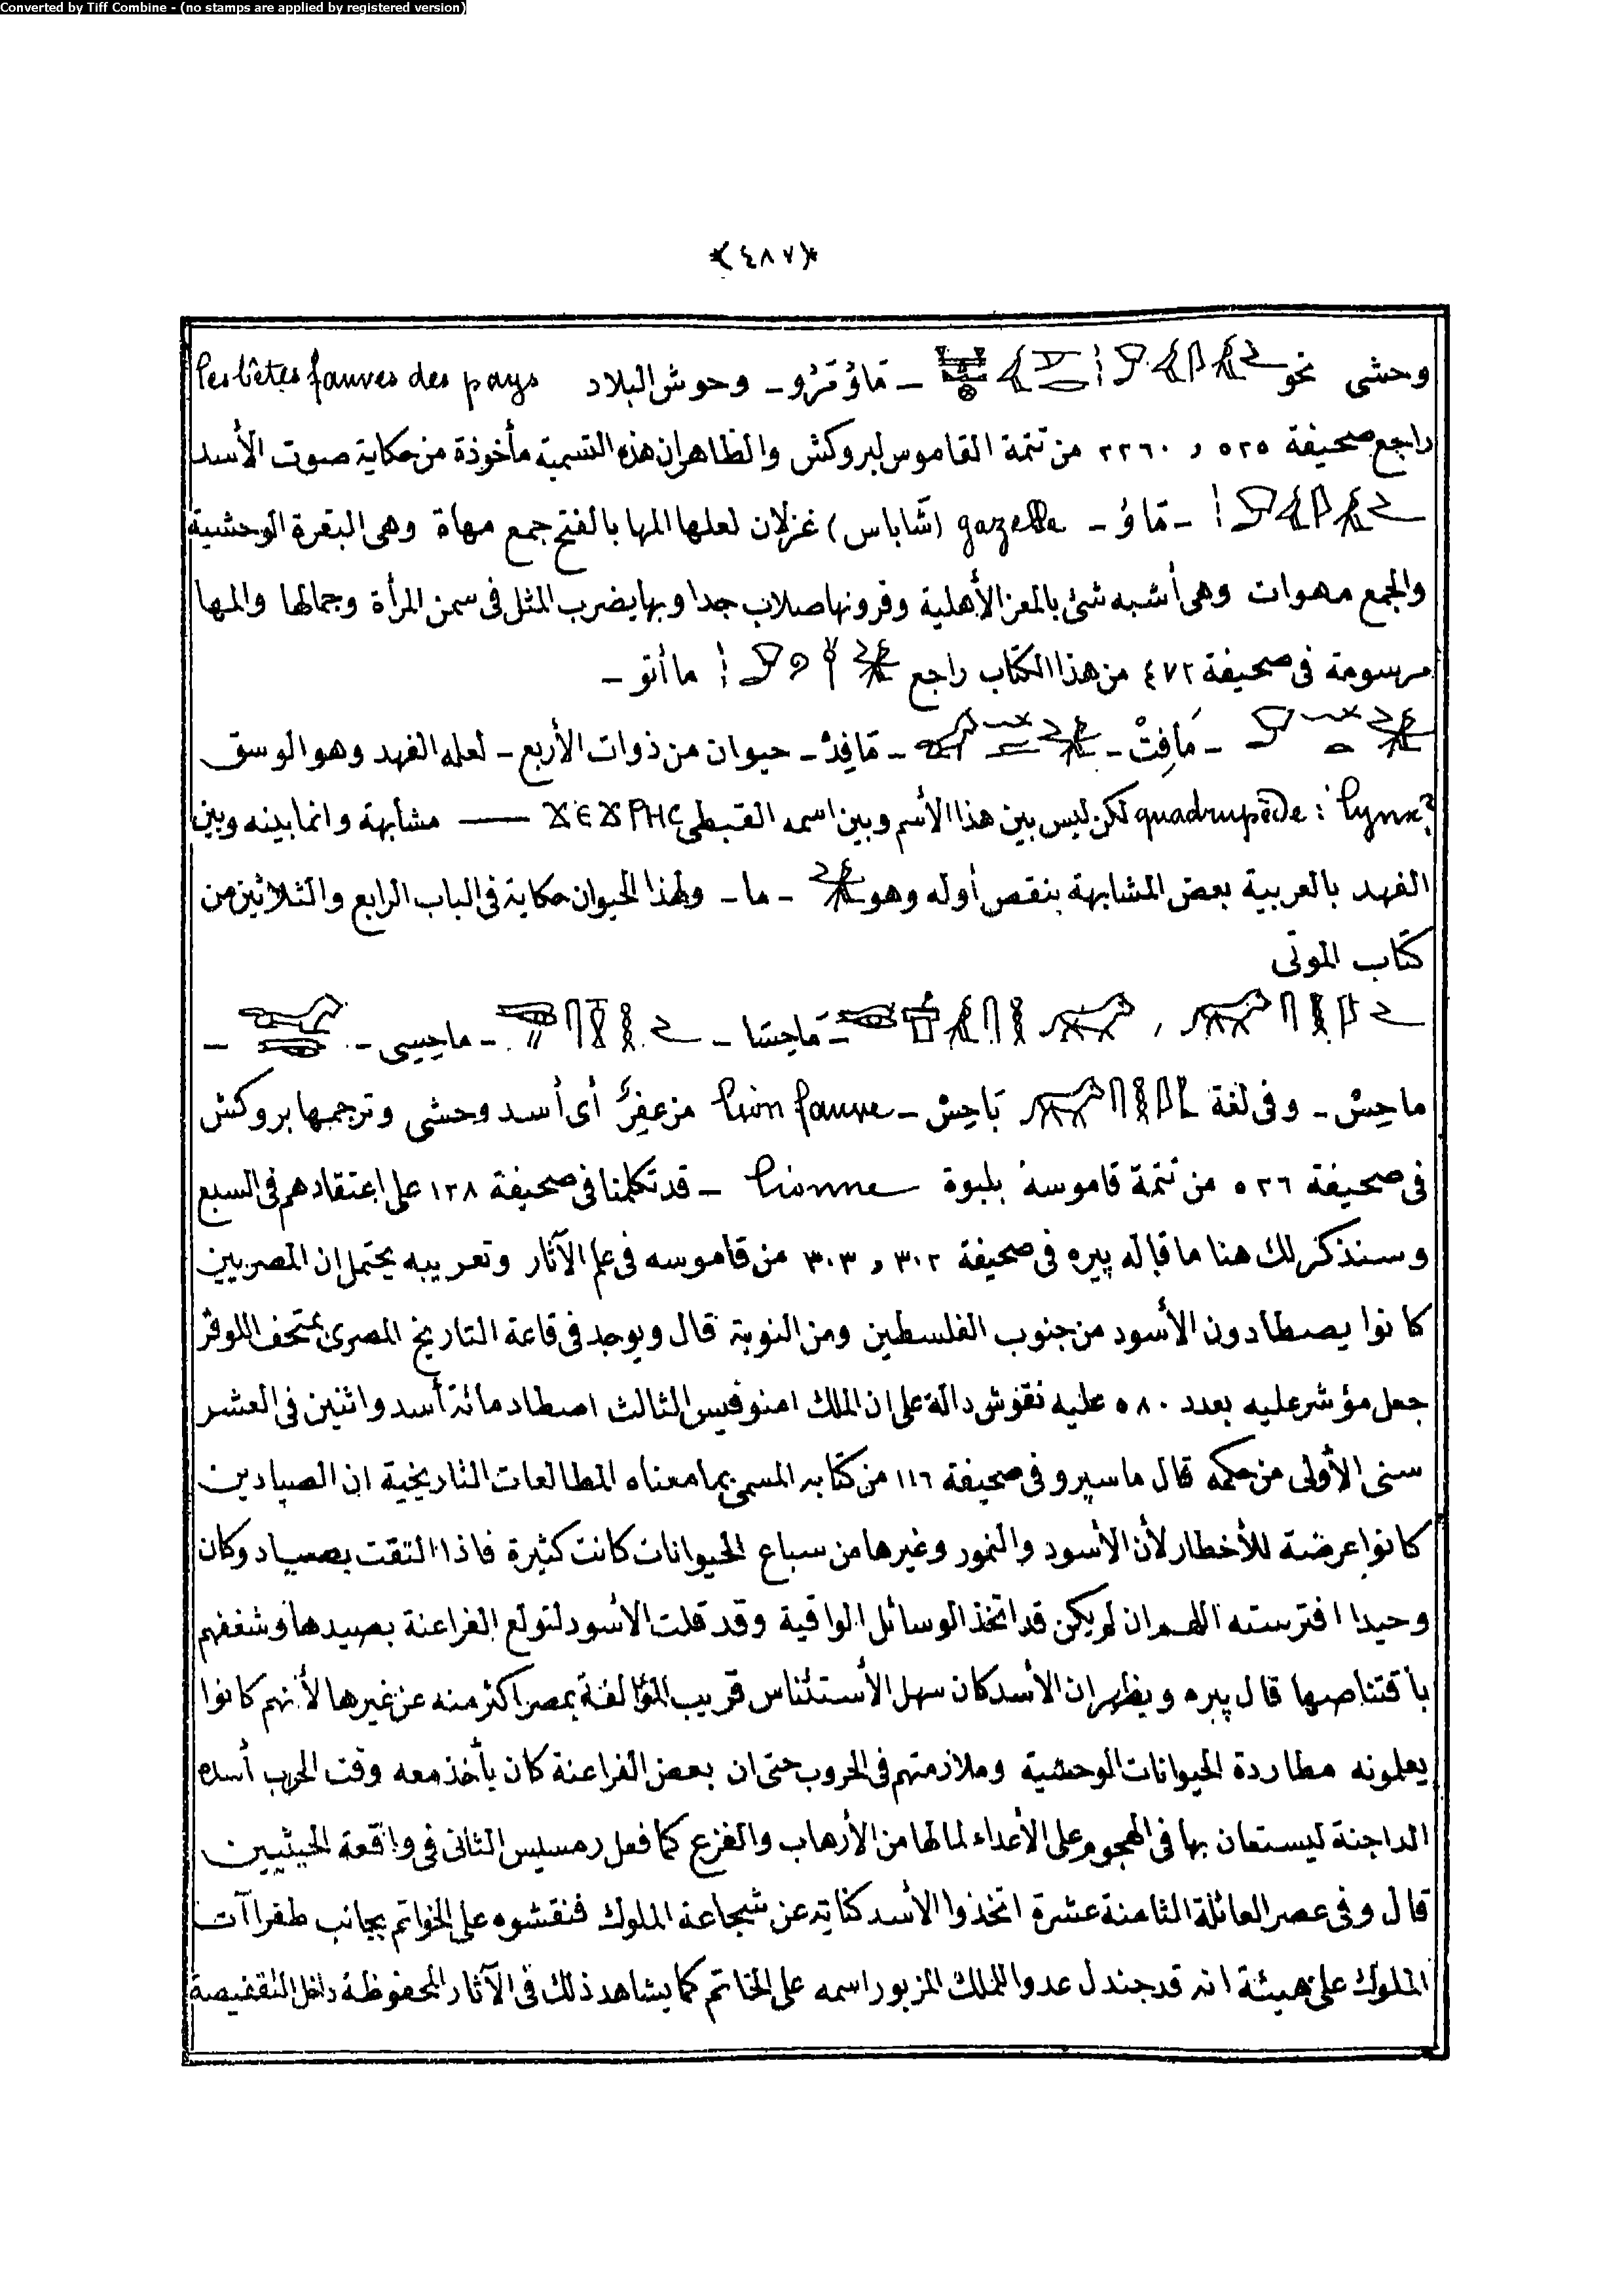 Converted by Tiff Combine - (no stamps are applied by registered version)
﴿٤٨٧﴾
وحشى نحو – مَاوُ مَزُو – وحوش البلاد les bêtes fauves des pays
راجع صحيفة ٥٢٥ و ٢٢٦٠ من تتمة القاموس لبروكش والظاهر ان هذه التسمية مأخوذة من حكاية صوت الأسد
– مَاوُ – gazelle (شاباس) غزلان لعلها المها بالفتح جمع مهاة وهى البقرة الوحشية
والجمع مهوات وهى أشبه شئ بالمعز الأهلية وقرونها صلاب جدا وبها يضرب المثل فى سمن المرأة وجمالها والمها
مرسومة فى صحيفة ٤٧٢ من هذا الكتاب راجع ما أتو –
– مَافِتْ – – مَافِدْ – حيوان من ذوات الأربع – لعله الفهد وهو الوسق
quadrupède : lynx? لكن ليس بين هذا الأسم وبين اسمه القبطى — مشابهة وانما بينه وبين
الفهد بالعربية بعض المشابهة بنقص أوله وهو – ما – ولهذا الحيوان حكاية فى الباب الرابع والثلاثين من
كتاب الموتى
، – مَاحِسَا – – ماحِسِى – –
ماحِسْ – وفى لغة بَاحِسْ – lion fauve مزعفِرٌ أى أسد وحشى وترجمها بروكش
فى صحيفة ٥٢٦ من تتمة قاموسه بلبوة lionne – قد تكلمنا فى صحيفة ١٢٨ على اعتقادهم فى السبع
وسنذكر لك هنا ما قاله پيره فى صحيفة ٣٠٢ و ٣٠٣ من قاموسه فى علم الآثار وتعريبه يحتمل ان المصريين
كانوا يصطادون الأسود من جنوب الفلسطين ومن النوبة قال ويوجد فى قاعة التاريخ المصرى بمتحف اللوفر
جعل مؤشر عليه بعدد ٥٨٠ عليه نقوش دالة على ان الملك امنوفيس الثالث اصطاد مائة أسد واثنين فى العشر
سنى الأولى من حكمه قال ماسپرو فى صحيفة ١١٦ من كتابه المسمى بما معناه المطالعات التاريخية ان الصيادين
كانوا عرضة للأخطار لأن الأسود والنمور وغيرها من سباع الحيوانات كانت كثيرة فاذا التقت بصياد وكان
وحيدا افترسته اللهم ان لم يكن قد اتخذ الوسائل الواقية وقد قلت الأسود لتولع الفراعنة بصيدها وشغفهم
باقتناصها قال پيره ويظهر ان الأسد كان سهل الأستئناس قريب المؤالفة بمصر اكثر منه عن غيرها لأنهم كانوا
يعلمونه مطاردة الحيوانات الوحشية وملازمتهم فى الحروب حتى ان بعض الفراعنة كان يأخذ معه وقت الحرب أسده
الداجنة ليستعان بها فى الهجوم على الأعداء لما لها من الأرهاب والفزع كما فعل رمسيس الثانى فى واقعة الخيثيين
قال وفى عصر العائلة الثامنة عشرة اتخذوا الأسد كناية عن شجاعة الملوك فنقشوه على الخواتم بجانب طغراآت
الملوك على هيئة انه قد جندل عدوا للملك المزبور اسمه على الخاتم كما يشاهد ذلك فى الآثار المحفوظة داخل القفيصة